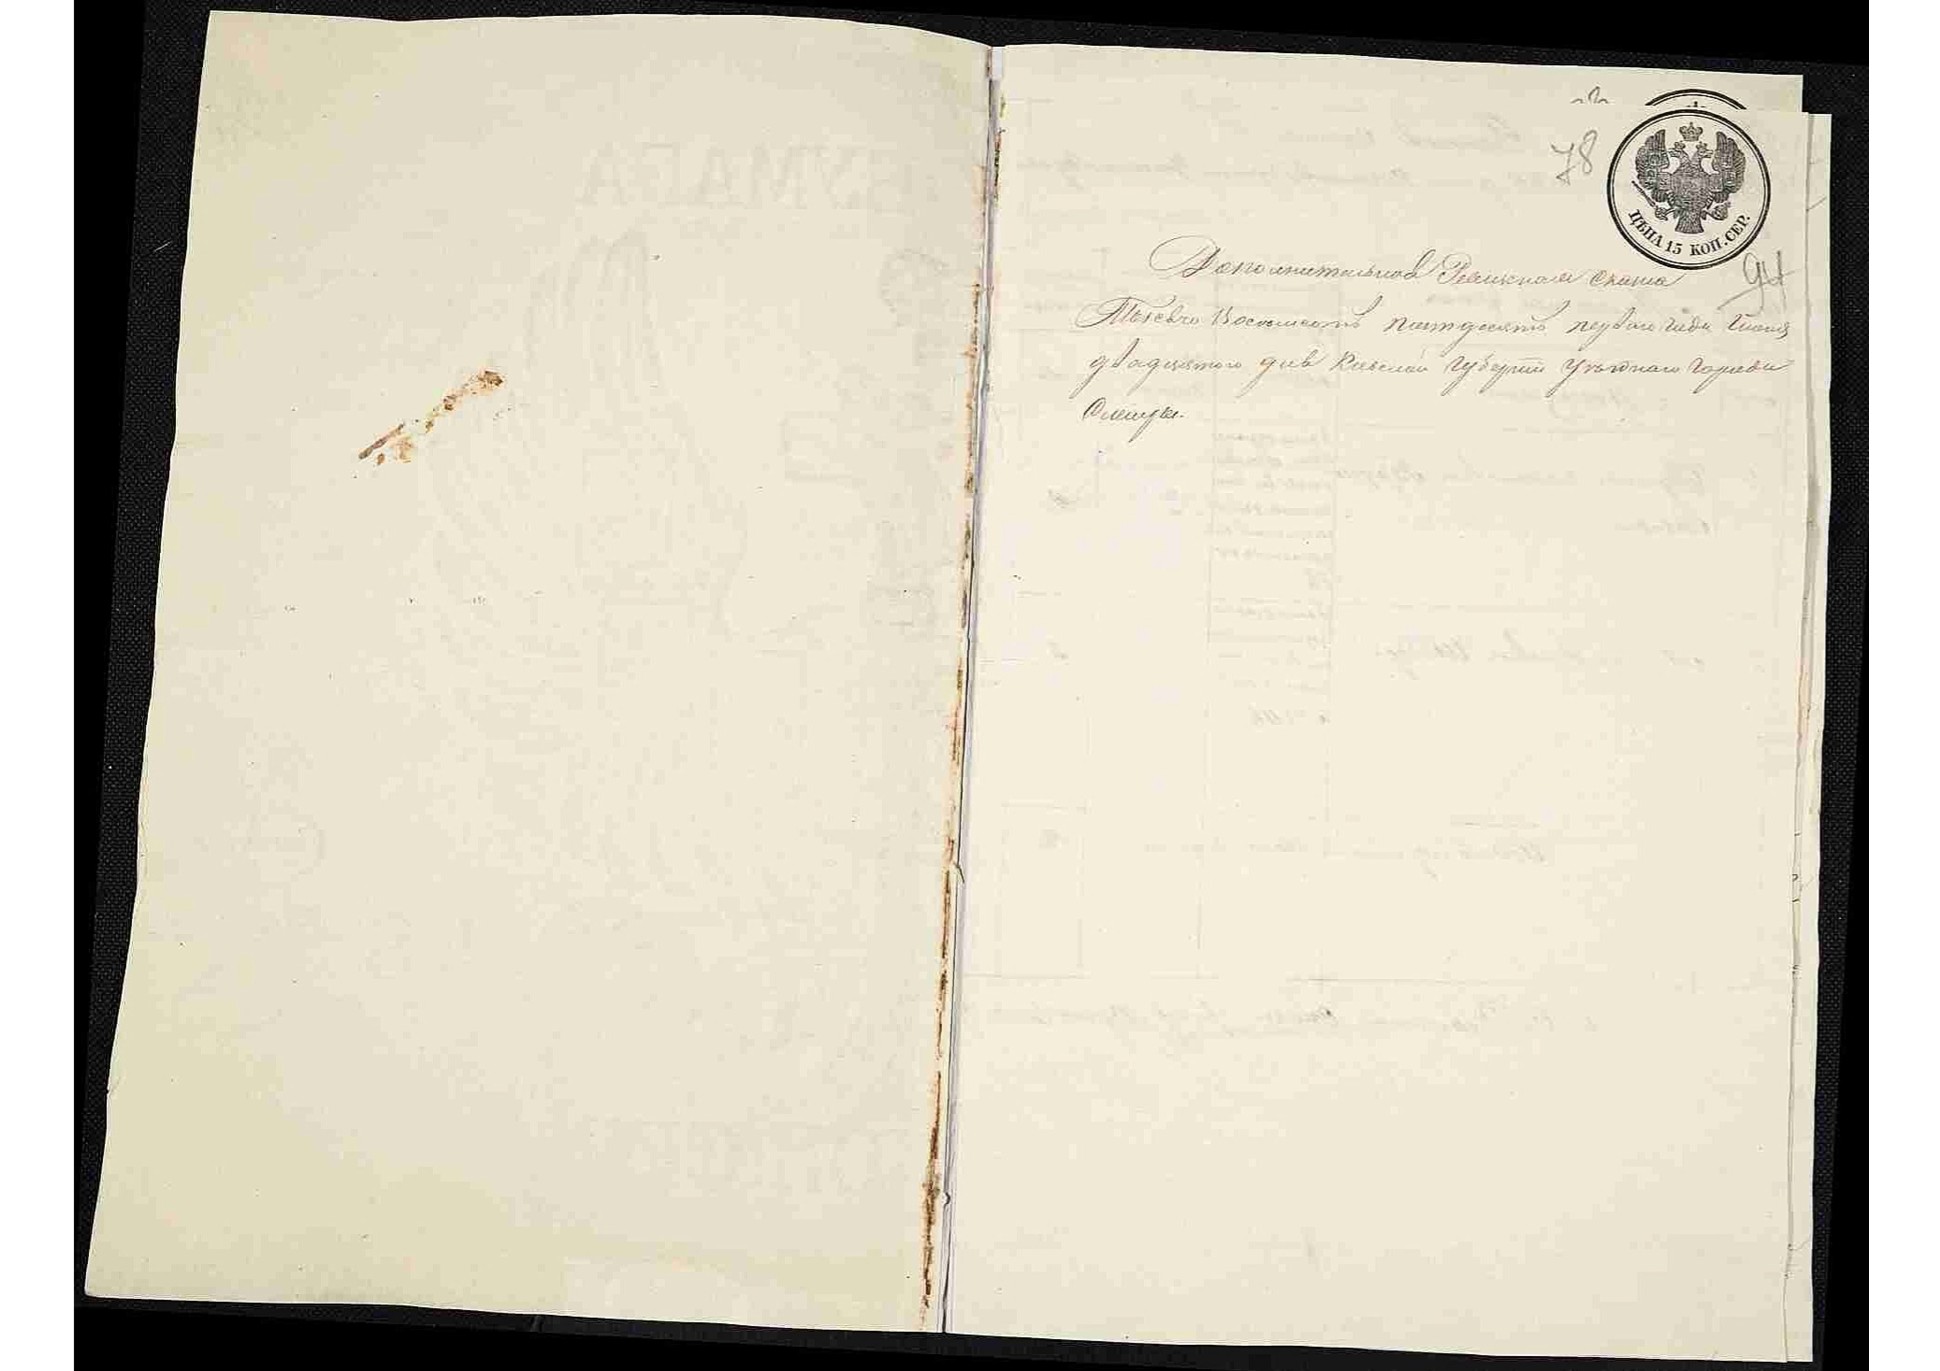 78
ЦѢНА 15 КОП. СЕР.
94
Дополнительная Ревизская сказка
Тысяча Восемсотъ пятдесятъ перваго года Іюня
двадцятого дня Кіевской Губерніи Уѣзднаго Города